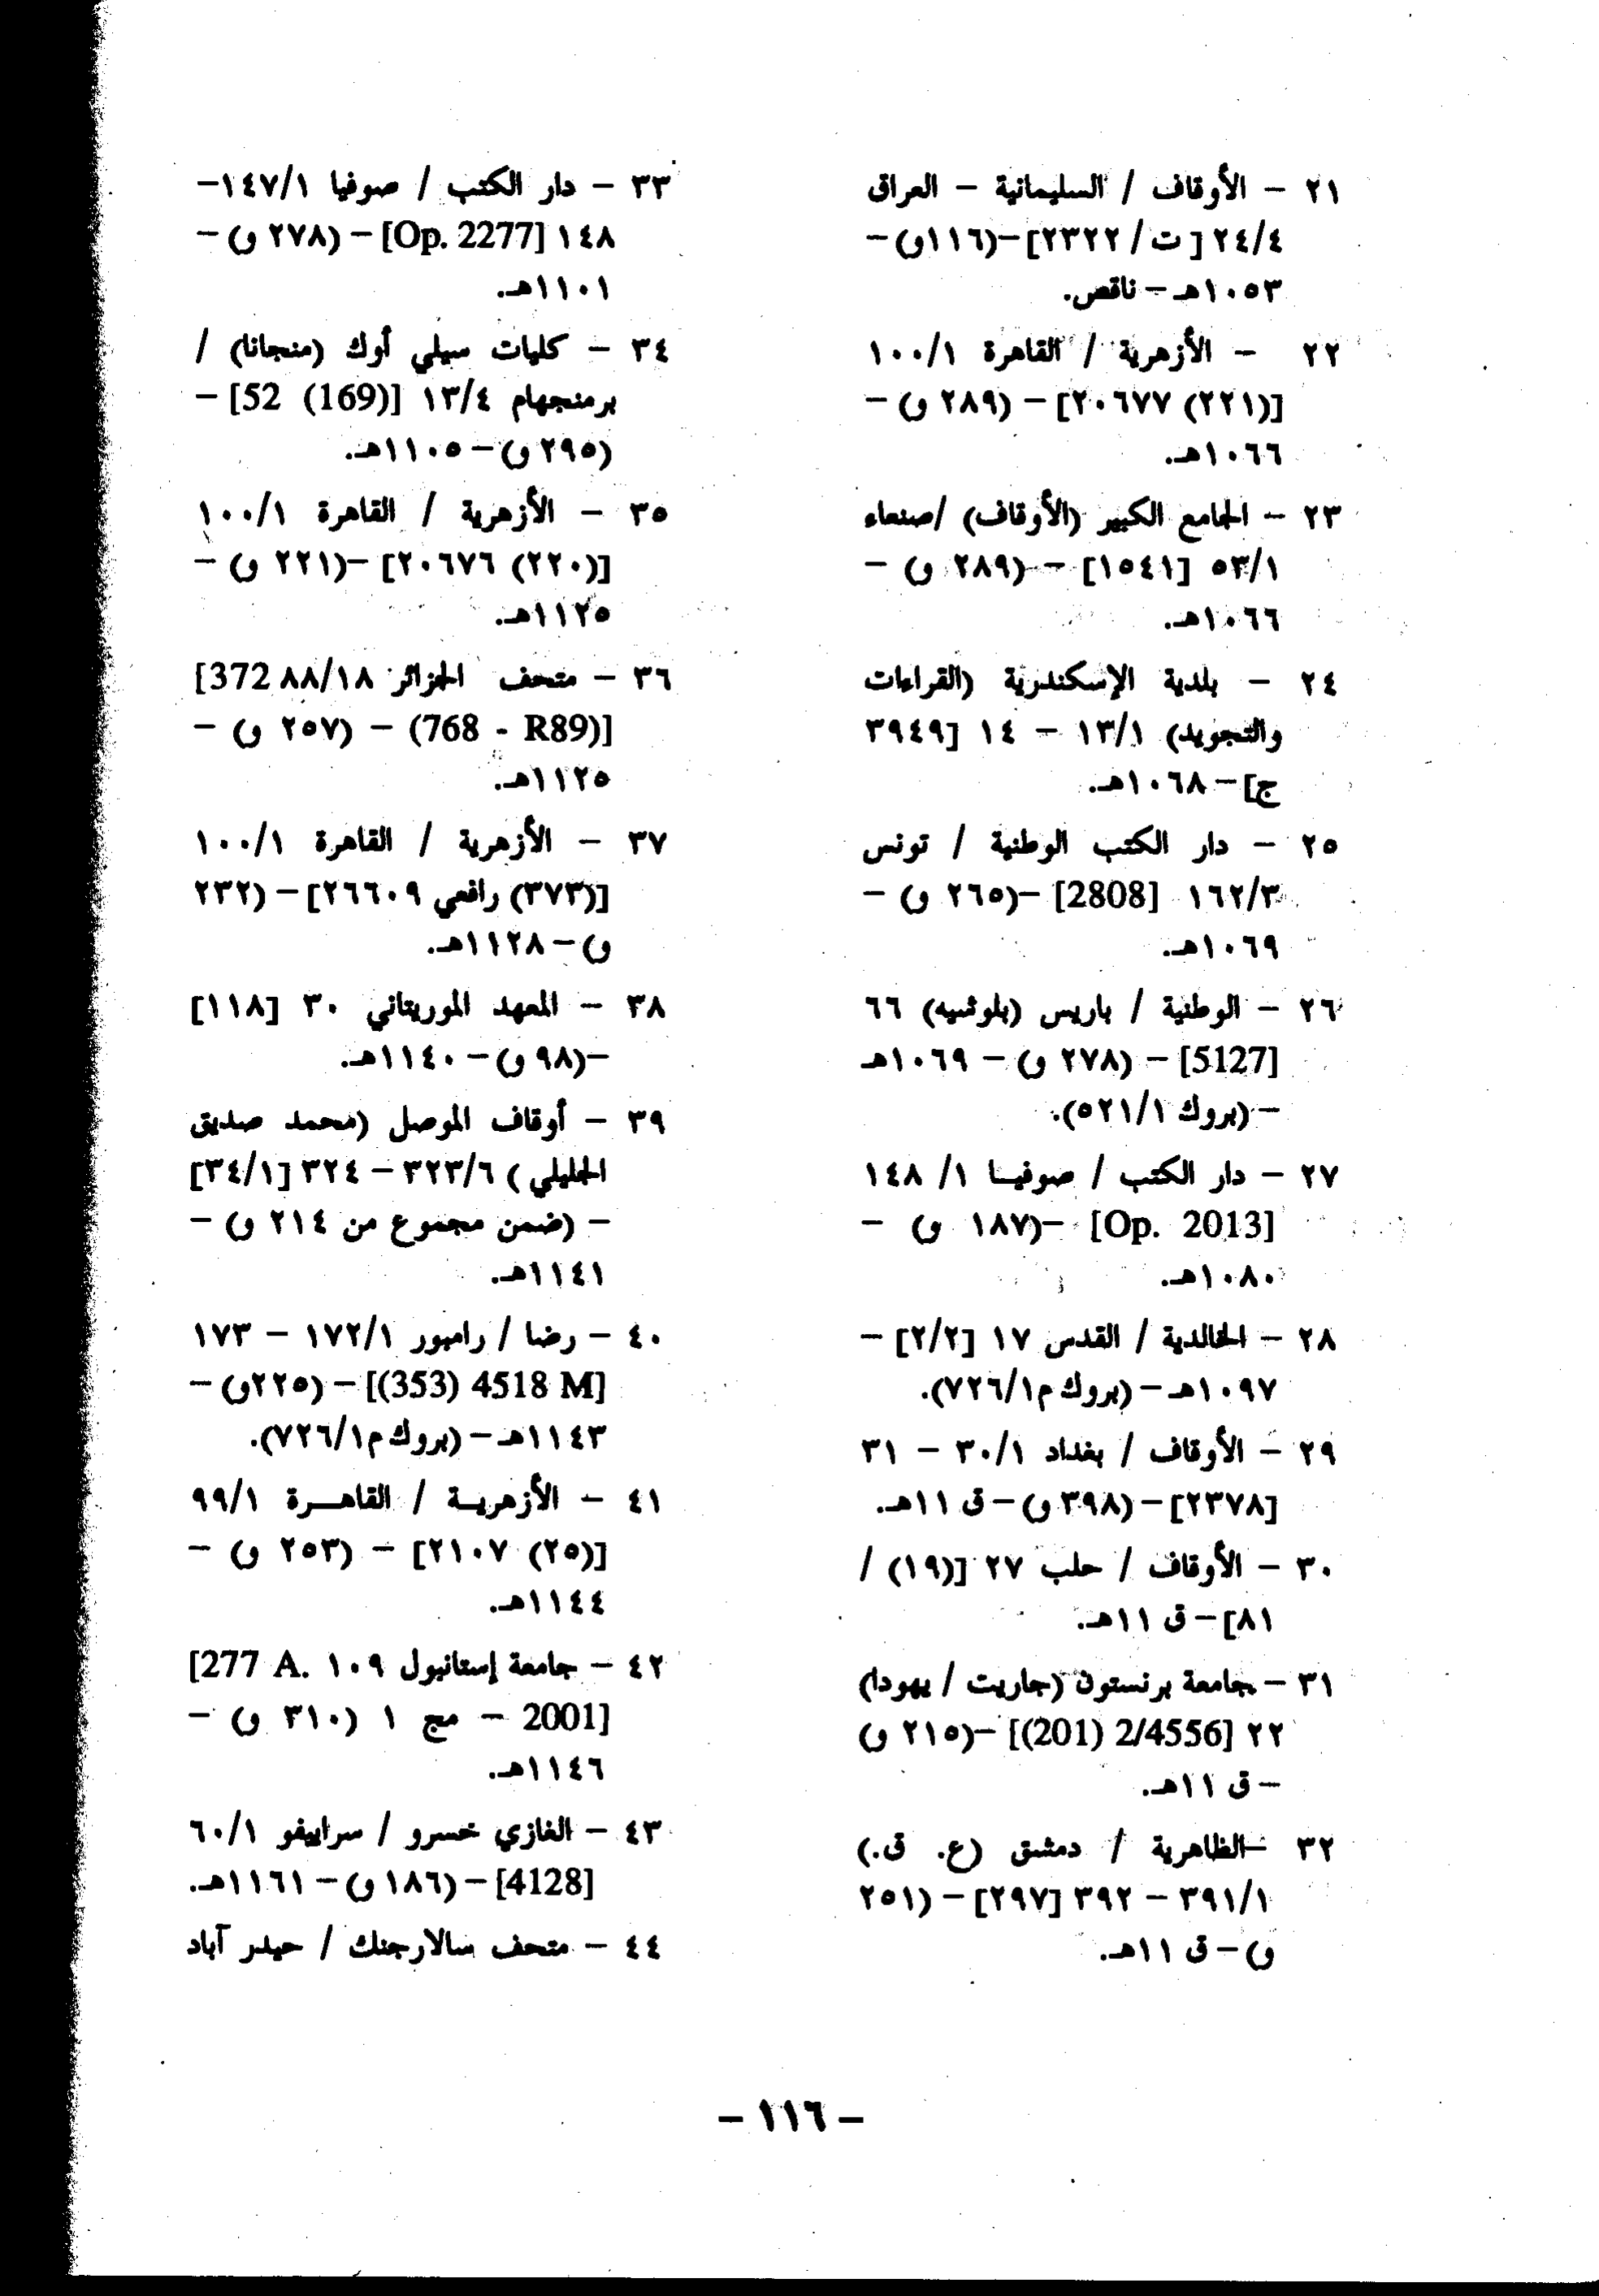 ٢١ – الأوقاف / السليمانية – العراق
٢٤/٤ [ت/ ٢٣٢٢]–(١١٦و)–
١٠٥٣هـ – ناقص.
٢٢ – الأزهرية / القاهرة ١٠٠/١
[(٢٢١) ٢٠٦٧٧] – (٢٨٩ و) –
١٠٦٦هـ.
٢٣ – الجامع الكبير (الأوقاف) /صنعاء
٥٣/١ [١٥٤١] – (٢٨٩ و) –
١٠٦٦هـ.
٢٤ – بلدية الإسكندرية (القراءات
والتجويد) ١٣/١ – ١٤ [٣٩٤٩
ج] – ١٠٦٨هـ.
٢٥ – دار الكتب الوطنية / تونس
١٦٢/٣ [2808] –(٢٦٥ و) –
١٠٦٩هـ.
٢٦ – الوطنية / باريس (بلوشيه) ٦٦
[5127] – (٢٧٨ و) – ١٠٦٩هـ
– (بروك ٥٢١/١).
٢٧ – دار الكتب / صوفيـا ١/ ١٤٨
[Op. 2013] –(١٨٧ و) –
١٠٨٠هـ.
٢٨ – الخالدية / القدس ١٧ [٢/٢] –
١٠٩٧هـ – (بروك م٧٢٦/١).
٢٩ – الأوقاف / بغداد ٣٠/١ – ٣١
[٢٣٧٨] – (٣٩٨ و) – ق ١١هـ.
٣٠ – الأوقاف / حلب ٢٧ [(١٩) /
٨١] – ق ١١هـ.
٣١ – جامعة برنستون (جاريت / يهودا)
٢٢ [2/4556 (201)] –(٢١٥ و)
– ق ١١هـ.
٣٢ –الظاهرية / دمشق (ع. ق.)
٣٩١/١ – ٣٩٢ [٢٩٧] – (٢٥١
و) – ق ١١هـ.
٣٣ – دار الكتب / صوفيا ١٤٧/١–
١٤٨ [Op. 2277] – (٢٧٨ و) –
١١٠١هـ.
٣٤ – كليات سيلي أوك (منجانا) /
برمنجهام ١٣/٤ [52 (169)] –
(٢٩٥ و) – ١١٠٥هـ.
٣٥ – الأزهرية / القاهرة ١٠٠/١
[(٢٢٠) ٢٠٦٧٦] –(٢٢١ و) –
١١٢٥هـ.
٣٦ – متحف الجزائر ٨٨/١٨ [372
(768 - R89)] – (٢٥٧ و) –
١١٢٥هـ.
٣٧ – الأزهرية / القاهرة ١٠٠/١
[(٣٧٣) رافعي ٢٦٦٠٩] – (٢٣٢
و) – ١١٢٨هـ.
٣٨ – المعهد الموريتاني ٣٠ [١١٨]
–(٩٨ و) – ١١٤٠هـ.
٣٩ – أوقاف الموصل (محمد صديق
الجليلي ) ٣٢٣/٦ – ٣٢٤ [٣٤/١]
– (ضمن مجموع من ٢١٤ و) –
١١٤١هـ.
٤٠ – رضا / رامبور ١٧٢/١ – ١٧٣
[(353) 4518 M] – (٢٢٥و) –
١١٤٣هـ – (بروك م٧٢٦/١).
٤١ – الأزهريـة / القاهـرة ٩٩/١
[(٢٥) ٢١٠٧] – (٢٥٣ و) –
١١٤٤هـ.
٤٢ – جامعة إستانبول ١٠٩ [277 A.
2001] – مج ١ (٣١٠ و) –
١١٤٦هـ.
٤٣ – الغازي خسرو / سراييفو ٦٠/١
[4128] – (١٨٦ و) – ١١٦١هـ.
٤٤ – متحف سالارجنك / حيدر آباد
– ١١٦ –